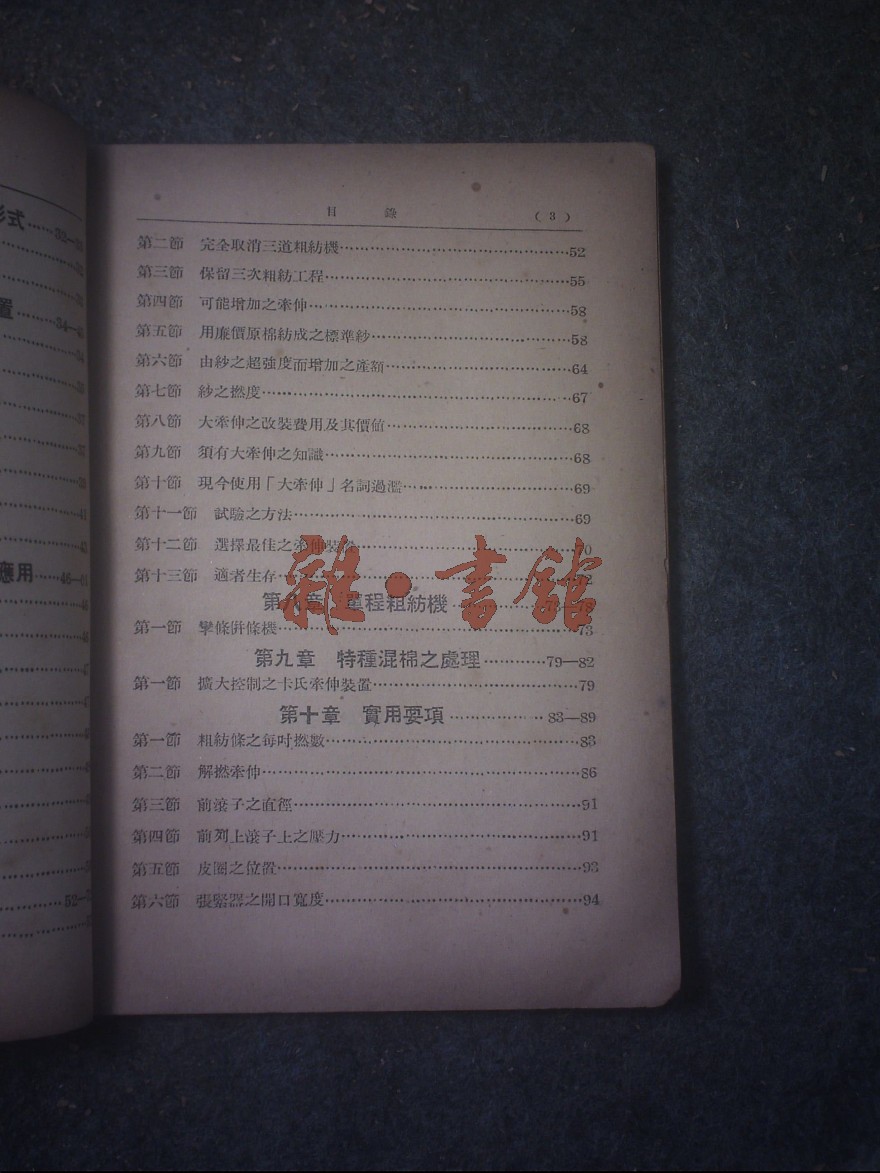 目 錄 (3)
第二節 完全取消三道粗紡機 52
第三節 保留三次粗紡工程 55
第四節 可能增加之牽伸 58
第五節 用廉價原棉紡成之標準紗 58
第六節 由紗之超強度而增加之產額 64
第七節 紗之撚度 67
第八節 大牽伸之改裝費用及其價值 68
第九節 須有大牽伸之知識 68
第十節 現今使用「大牽伸」名詞過濫 69
第十一節 試驗之方法 69
第十二節 選擇最佳之牽伸裝
第十三節 適者生存
第八章 單程粗紡機
第一節 攣條併條機 73
第九章 特種混棉之處理 79—82
第一節 擴大控制之卡氏牽伸裝置 79
第十章 實用要項 83—89
第一節 粗紡條之每吋撚數 83
第二節 解撚牽伸 86
第三節 前滾子之直徑 91
第四節 前列上滾子上之壓力 91
第五節 皮圈之位置 93
第六節 張緊器之開口寬度 94
雜·書館
形式 32
置 34
應用 46
52